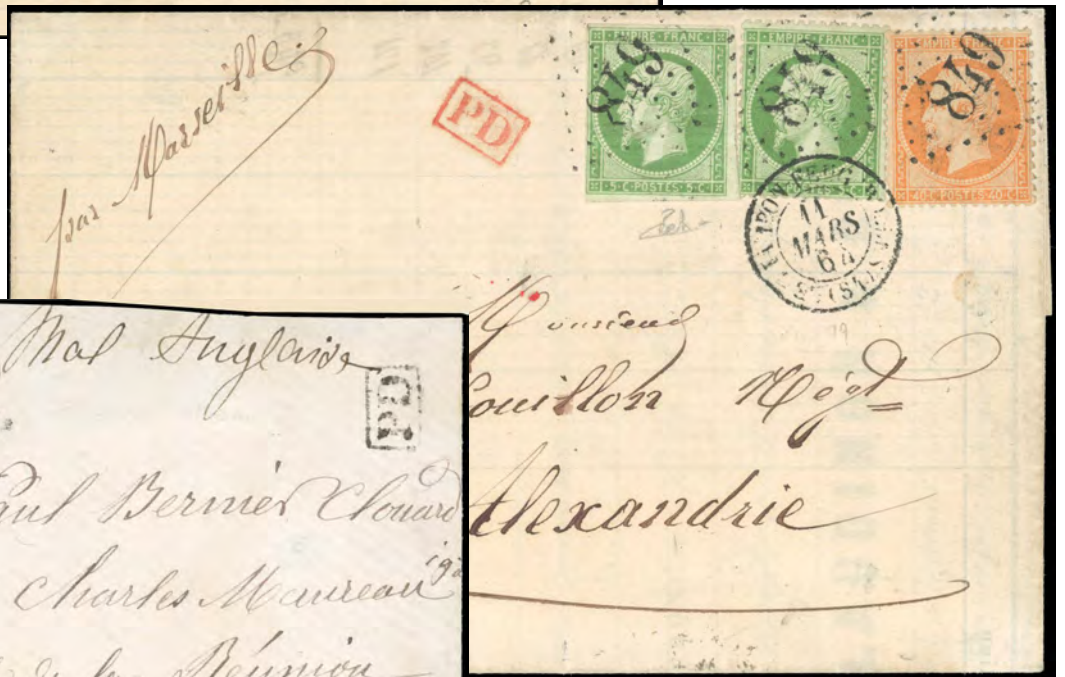 par Marseille
PD
EMPIRE FRANC
849
5·C·POSTES·5·C
EMPIRE·FRANC
849
EMPIRE FRANC
849
40·C·POSTES·40·C
11
MARS
64
Monsieur
ouillon Négt
Alexandrie
Mal Anglaise
PD
Paul Bernier Clouard
Charles Maureau
de la Réunion